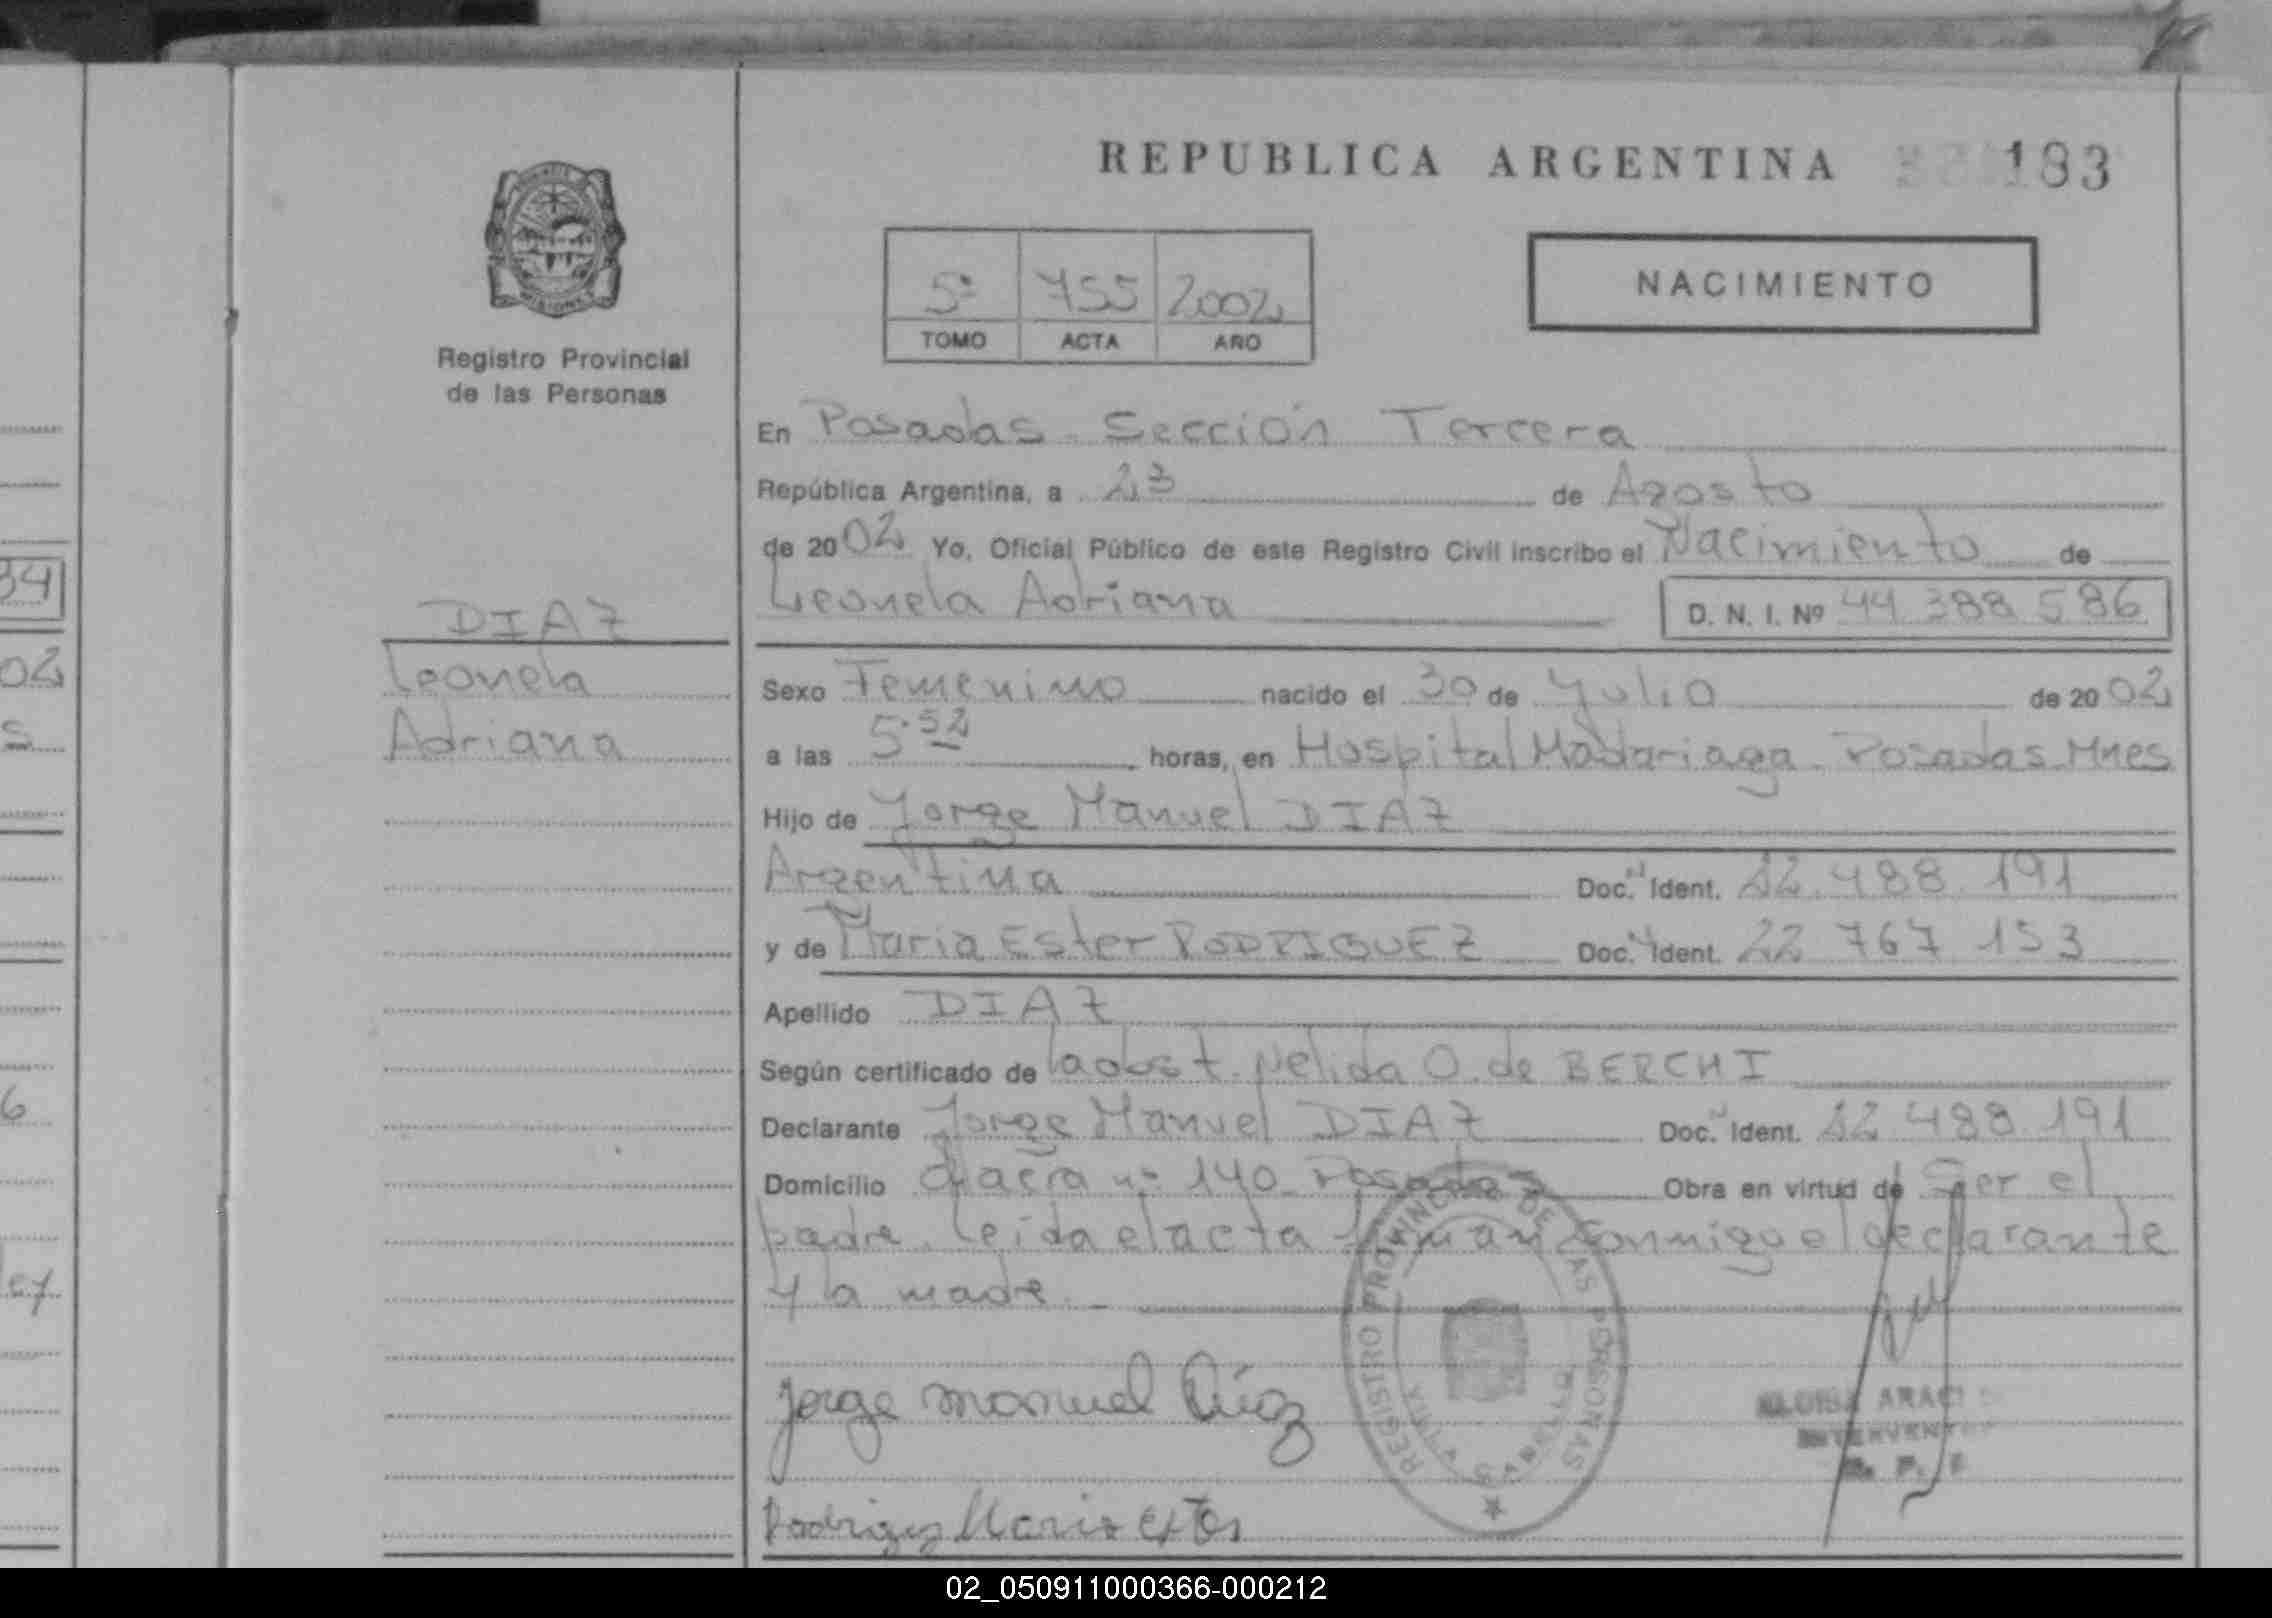 REPUBLICA ARGENTINA 183
5º 755 2002
TOMO ACTA AÑO
NACIMIENTO
Registro Provincial
de las Personas
En Posadas Sección Tercera
República Argentina, a 23 de Agosto
de 2002 Yo, Oficial Público de este Registro Civil inscribo el Nacimiento de
Leonela Adriana D. N. I. Nº 44 388 586
DIAZ
Leonela
Adriana
Sexo Femenino nacido el 30 de Julio de 2002
a las 5.52 horas, en Hospital Madariaga Posadas Mnes
Hijo de Jorge Manuel DIAZ
Argentina Doc. Ident. 12.488.191
y de Maria Ester RODRIGUEZ Doc. Ident. 22 767 153
Apellido DIAZ
Según certificado de la obst. Nelida O. de BERCHI
Declarante Jorge Manuel DIAZ Doc. Ident. 12 488.191
Domicilio chacra nº 140 Posadas Obra en virtud de Ser el
padre. Leida el acta firman conmigo el declarante
y la madre
Jorge manuel Díaz
REGISTRO PROVINCIAL DE LAS PERSONAS
VILLA CABELLO
ARACI
Rodriguez Maria Ester
34
02
s
6
ey
02_050911000366-000212